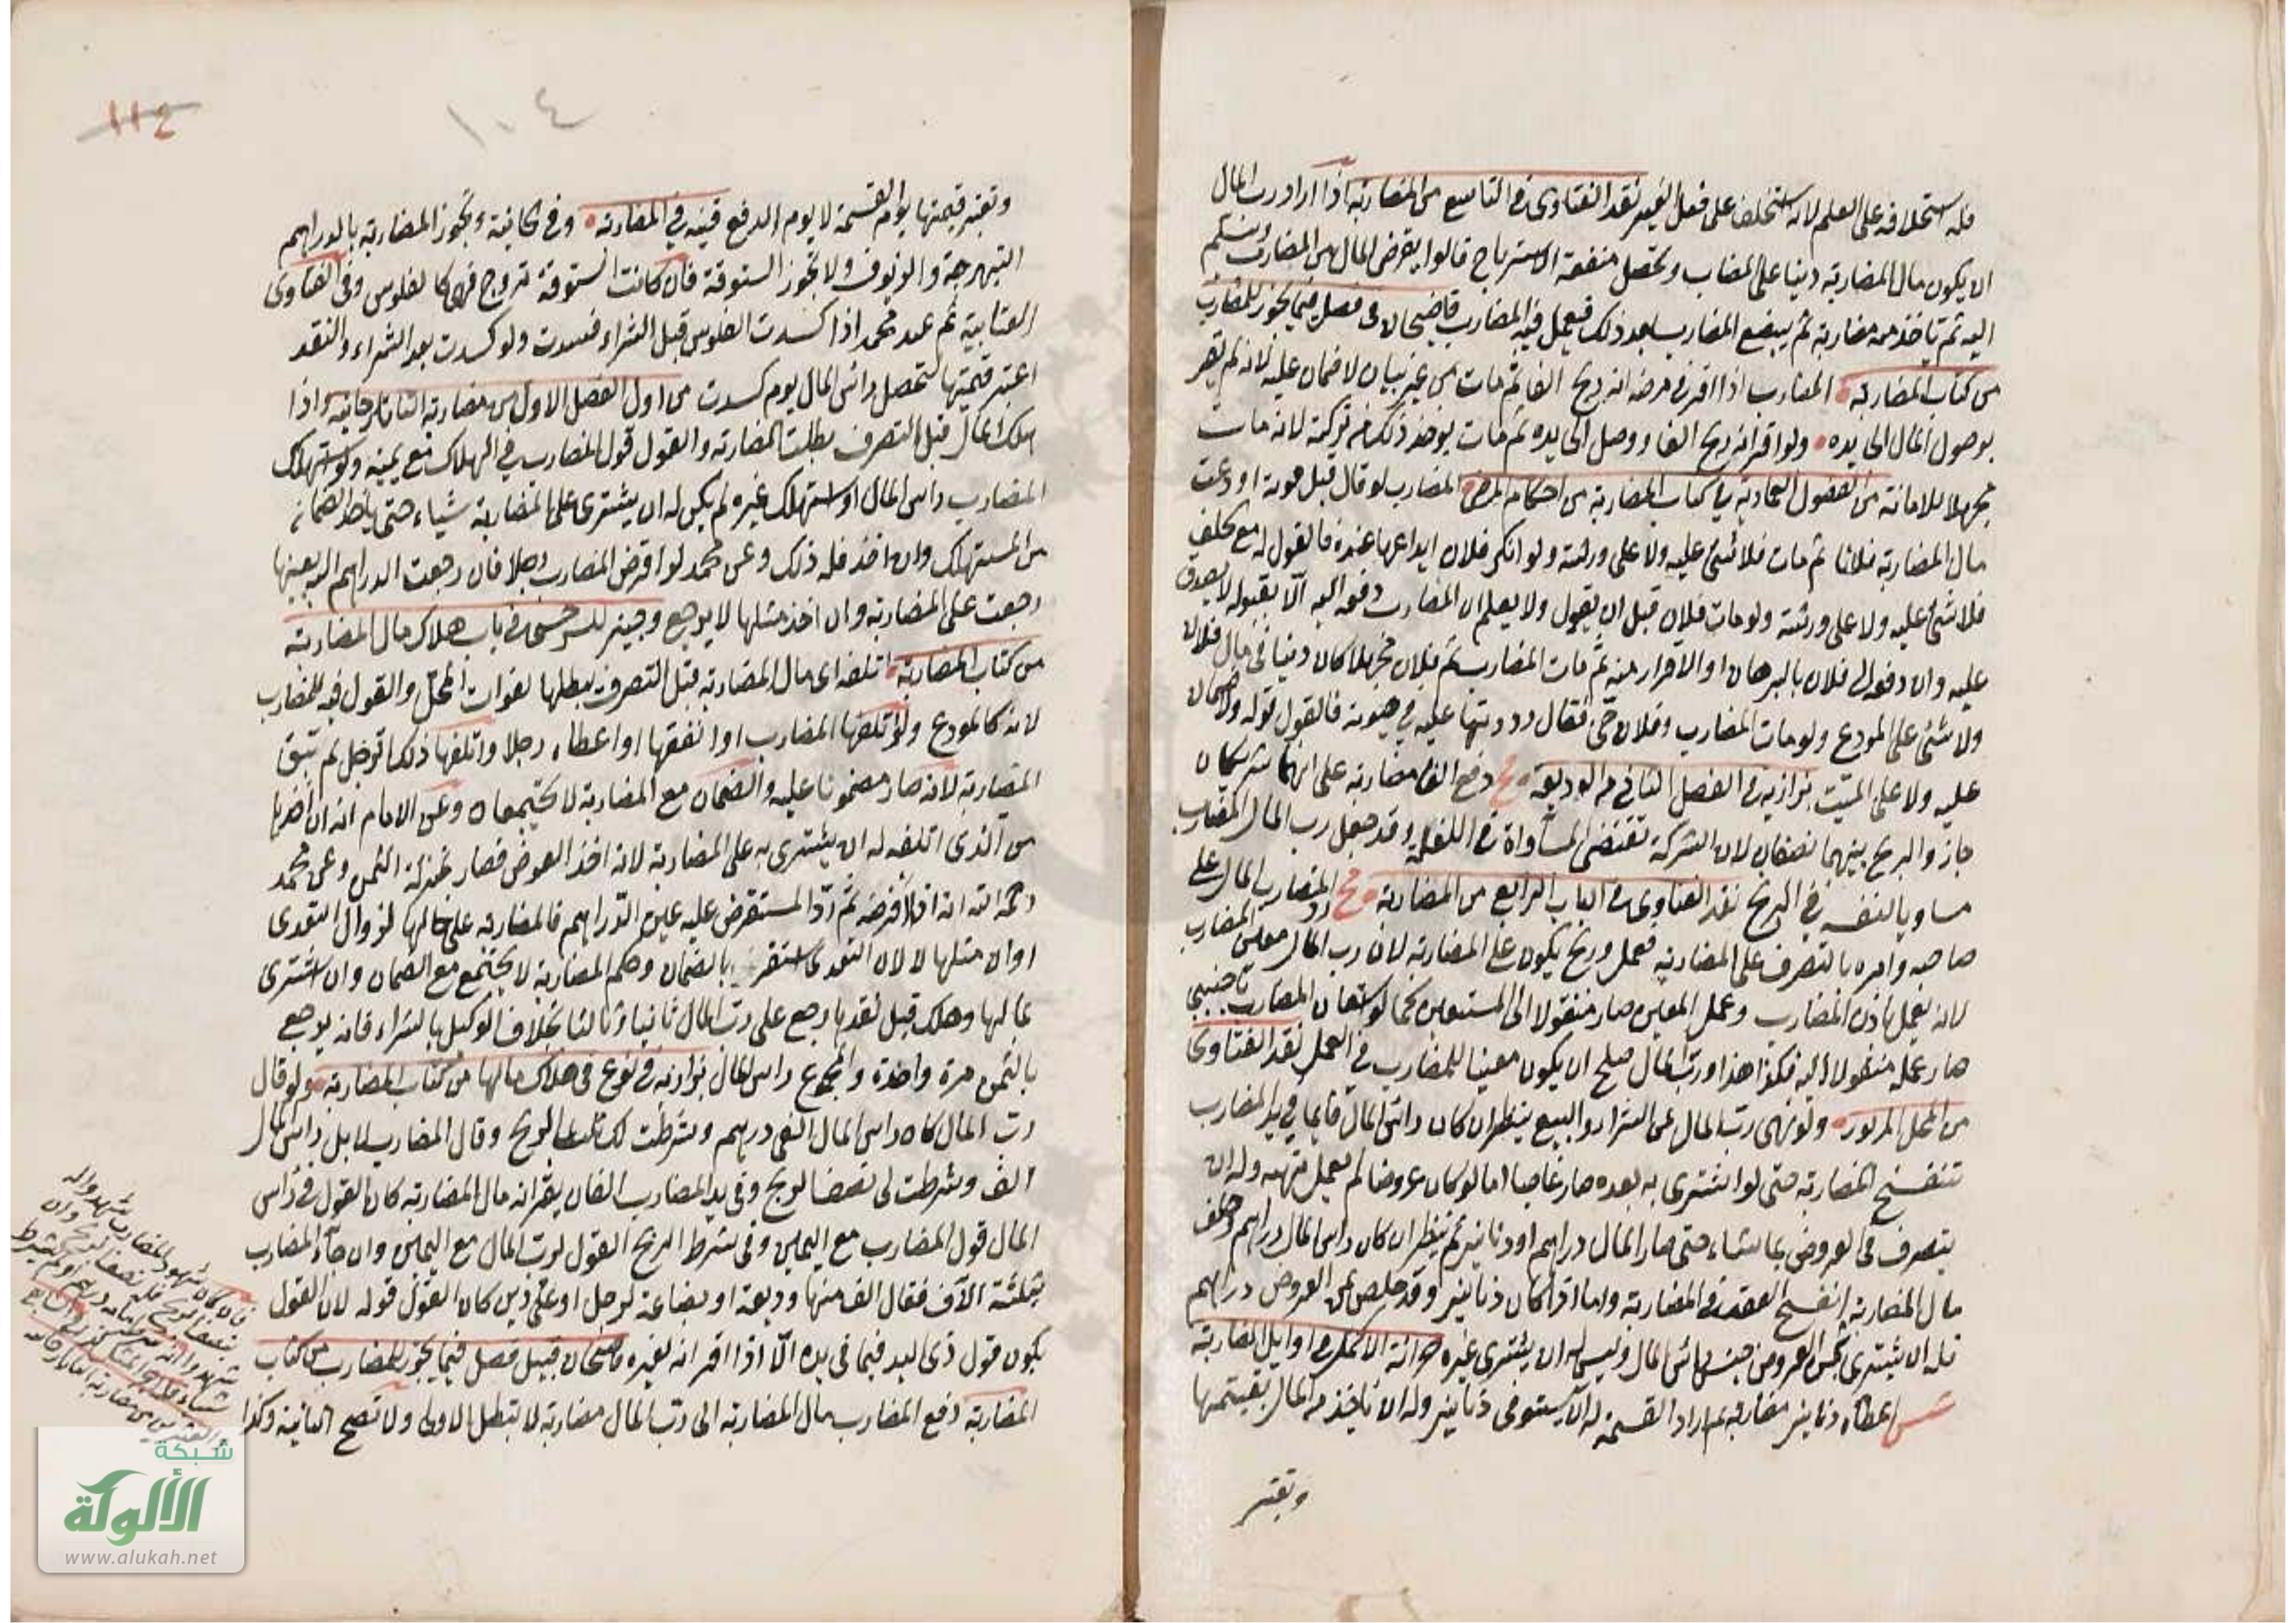 فله استحلافه على العلم لانه استحلف على فعل الغير نقد الفتاوى في التاسع من المضاربة اذا اراد رب المال
ان يكون مال المضاربة دينا على المضارب وتحصل منفعة الاسترباح قالوا يقرض المال من المضارب ويسلم
اليه ثم ياخذ منه مضاربة ثم يبضع المضارب بعد ذلك فيعمل فيه المضارب قاضيخان في فصل فيما يجوز للمضارب
من كتاب المضاربة المضارب اذا اقر في مرضه انه ربح الفا ثم مات من غير بيان لا ضمان عليه لانه لم يقر
بوصول المال الى يده ولو اقر انه ربح الفا ووصل الى يده ثم مات يوخذ ذلك من تركته لانه مات
مجهلا للامانة من الفصول العمادية في كتاب المضاربة من احكام المرضى المضارب لو قال قبل موته اودعت
مال المضاربة فلانا ثم مات فلا شئ عليه ولا على ورثته ولو انكر فلان ايداعها عنده فالقول له مع حلف
فلا شئ عليه ولا على ورثته ولو مات فلان قبل ان يقول ولا يعلم ان المضارب دفعه اليه الا بقوله لا يصدق
عليه وان دفعه الى فلان بالبرهان او الاقرار منه ثم مات المضارب ثم فلان مجهلا كان دينا في مال فلان
ولا شئ على المودع ولو مات المضارب وفلان حى فقال رددتها عليه في حيوته فالقول قوله ولا ضمان
عليه ولا على الميت بزازية في الفصل الثاني من الوديعة دفع الفا مضاربة على انهما شريكان
جاز والربح بينهما نصفان لان الشركة تقتضى المساواة في اللغة وقد جعل رب المال المضارب
مساويا لنفسه في الربح نقد الفتاوى في الباب الرابع من المضاربة رد المضارب المال على
صاحبه وامره بالتصرف على المضاربة فعمل وربح يكون على المضاربة لان رب المال معين المضارب
لانه يعمل باذن المضارب وعمل المعين صار منقولا الى المستعين كما لو استعان المضارب باجنبي
صار عمله منقولا اليه فكذا هذا ورب المال صلح ان يكون معينا للمضارب في العمل نقد الفتاوى
من المحل المزبور ولو نهى رب المال عن الشراء والبيع ينظر ان كان راس المال قايما في يد المضارب
تنفسخ المضاربة حتى لو اشترى به بعده صار غاصبا اما لو كان عروضا لم يعمل نهيه وله ان
يتصرف في العروض بما شاء حتى صار المال دراهم او دنانير ثم ينظر ان كان راس المال دراهم
مال المضاربة انفسخ العقد في المضاربة واما اذا كان دنانير وقد خلص ثمن العروض دراهم
فله ان يشترى جنس راس المال وليس له ان يشترى غيره خزانة الاكمل في اوايل المضاربة
اعطاه دنانير مضاربة ثم اراد القسمة له ان يستوفى دنانير وله ان ياخذ من المال بقيمتها
وتعتبر
١٠٤
١١٤
وتعتبر قيمتها يوم القسمة لا يوم الدفع قنيه في المضاربة وفي الخانية وتجوز المضاربة بالدراهم
النبهرجة والزيوف ولا تجوز الستوقة فان كانت الستوقة تروج فهى كالفلوس وفي الفتاوى
العتابية ثم عند محمد اذا كسدت الفلوس قبل الشراء فسدت ولو كسدت بعد الشراء والنقد
اعتبر قيمتها لتحصل راس المال يوم كسدت من اول الفصل الاول من مضاربة التاتارخانيه واذا
هلك المال قبل التصرف بطلت المضاربة والقول قول المضارب في الهلاك مع يمينه ولو استهلك
المضارب راس المال او استهلك غيره لم يكن له ان يشترى على المضاربة شياء حتى ياخذ الضمانة
من المستهلك وان اخذ فله ذلك وعن محمد لو اقرض المضارب رجلا فان رجعت الدراهم اليه بعينها
رجعت على المضاربة وان اخذ مثلها لا يرجع وجيز للسرخسى في باب هلاك مال المضاربة
من كتاب المضاربة تلف اى مال المضاربة قبل التصرف يبطلها لفوات المحل والقول فيه للمضارب
لانه كالمودع ولو اتلفها المضارب او انفقها او اعطاه رجلا واتلفها ذلك الرجل لم تبق
المضاربة لانه صار مضمونا عليه والضمان مع المضاربة لا يجتمعان وعن الامام انه ان اخذها
من الذى اتلفه له ان يشترى به على المضاربة لانه اخذ العوض فصار بمنزلة الثمن وعن محمد
رحمه الله انه اذا اقرضه ثم رد المستقرض عليه عين الدراهم فالمضاربة على حالها لزوال التعدى
اوان مثلها لا لان التعدى استقر بالضمان وحكم المضاربة لا يجتمع مع الضمان وان اشترى
بمالها وهلك قبل نقدها رجع على رب المال ثانيا وثالثا بخلاف الوكيل بالشراء فانه يرجع
بالثمن مرة واحدة والمجموع راس المال بزازية في نوع في هلاك مالها من كتاب المضاربة ولو قال
رب المال كان راس المال الفى درهم وشرطت لك ثلث الربح وقال المضارب لا بل راس المال
الف وشرطت لى نصف الربح وفي يد المضارب الفان يقر انه مال المضاربة كان القول في راس
المال قول المضارب مع اليمين وفي شرط الربح القول لرب المال مع اليمين وان جاء المضارب
بثلثة الاف فقال الف منها وديعة او بضاعة لرجل او على دين كان القول قوله لان القول
يكون قول ذى اليد فيما في يده الا اذا اقر انه لغيره قاضيخان قبيل فصل فيما يجوز للمضارب من كتاب
المضاربة دفع المضارب مال المضاربة الى رب المال مضاربة لا تبطل الاولى ولا تصح الثانية وكذا
شبكة
الألوكة
www.alukah.net